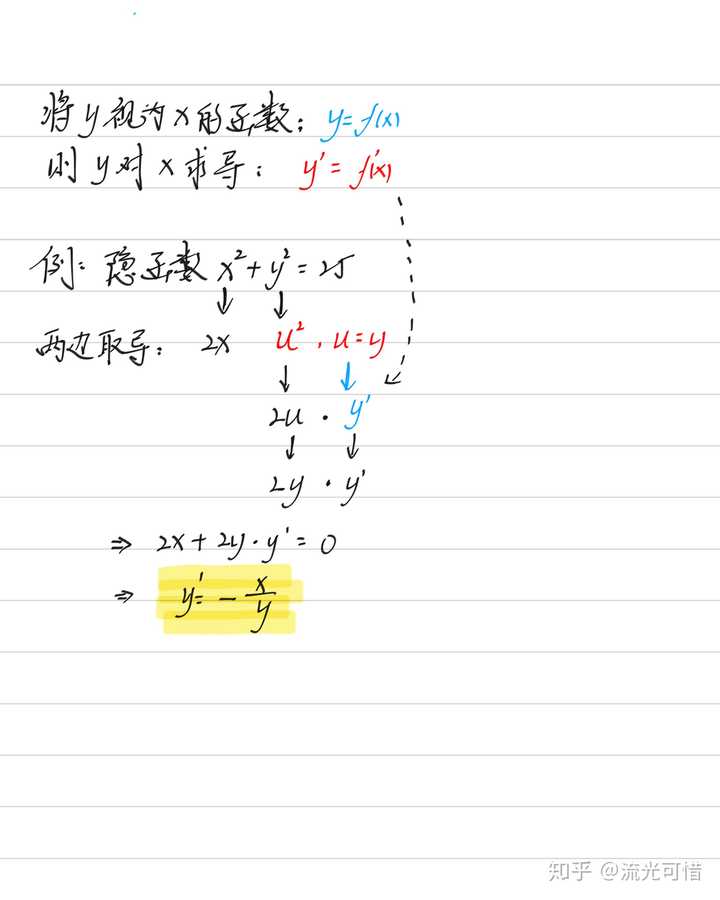 将y视为x的函数: y=f(x)
则y对x求导: y'=f'(x)
例: 隐函数 x²+y²=25
↓ ↓
两边取导: 2x u², u=y
↓ ↓
2u · y'
↓ ↓
2y · y'
⇒ 2x+2y·y'=0
⇒ y'=-x/y
知乎 @流光可惜